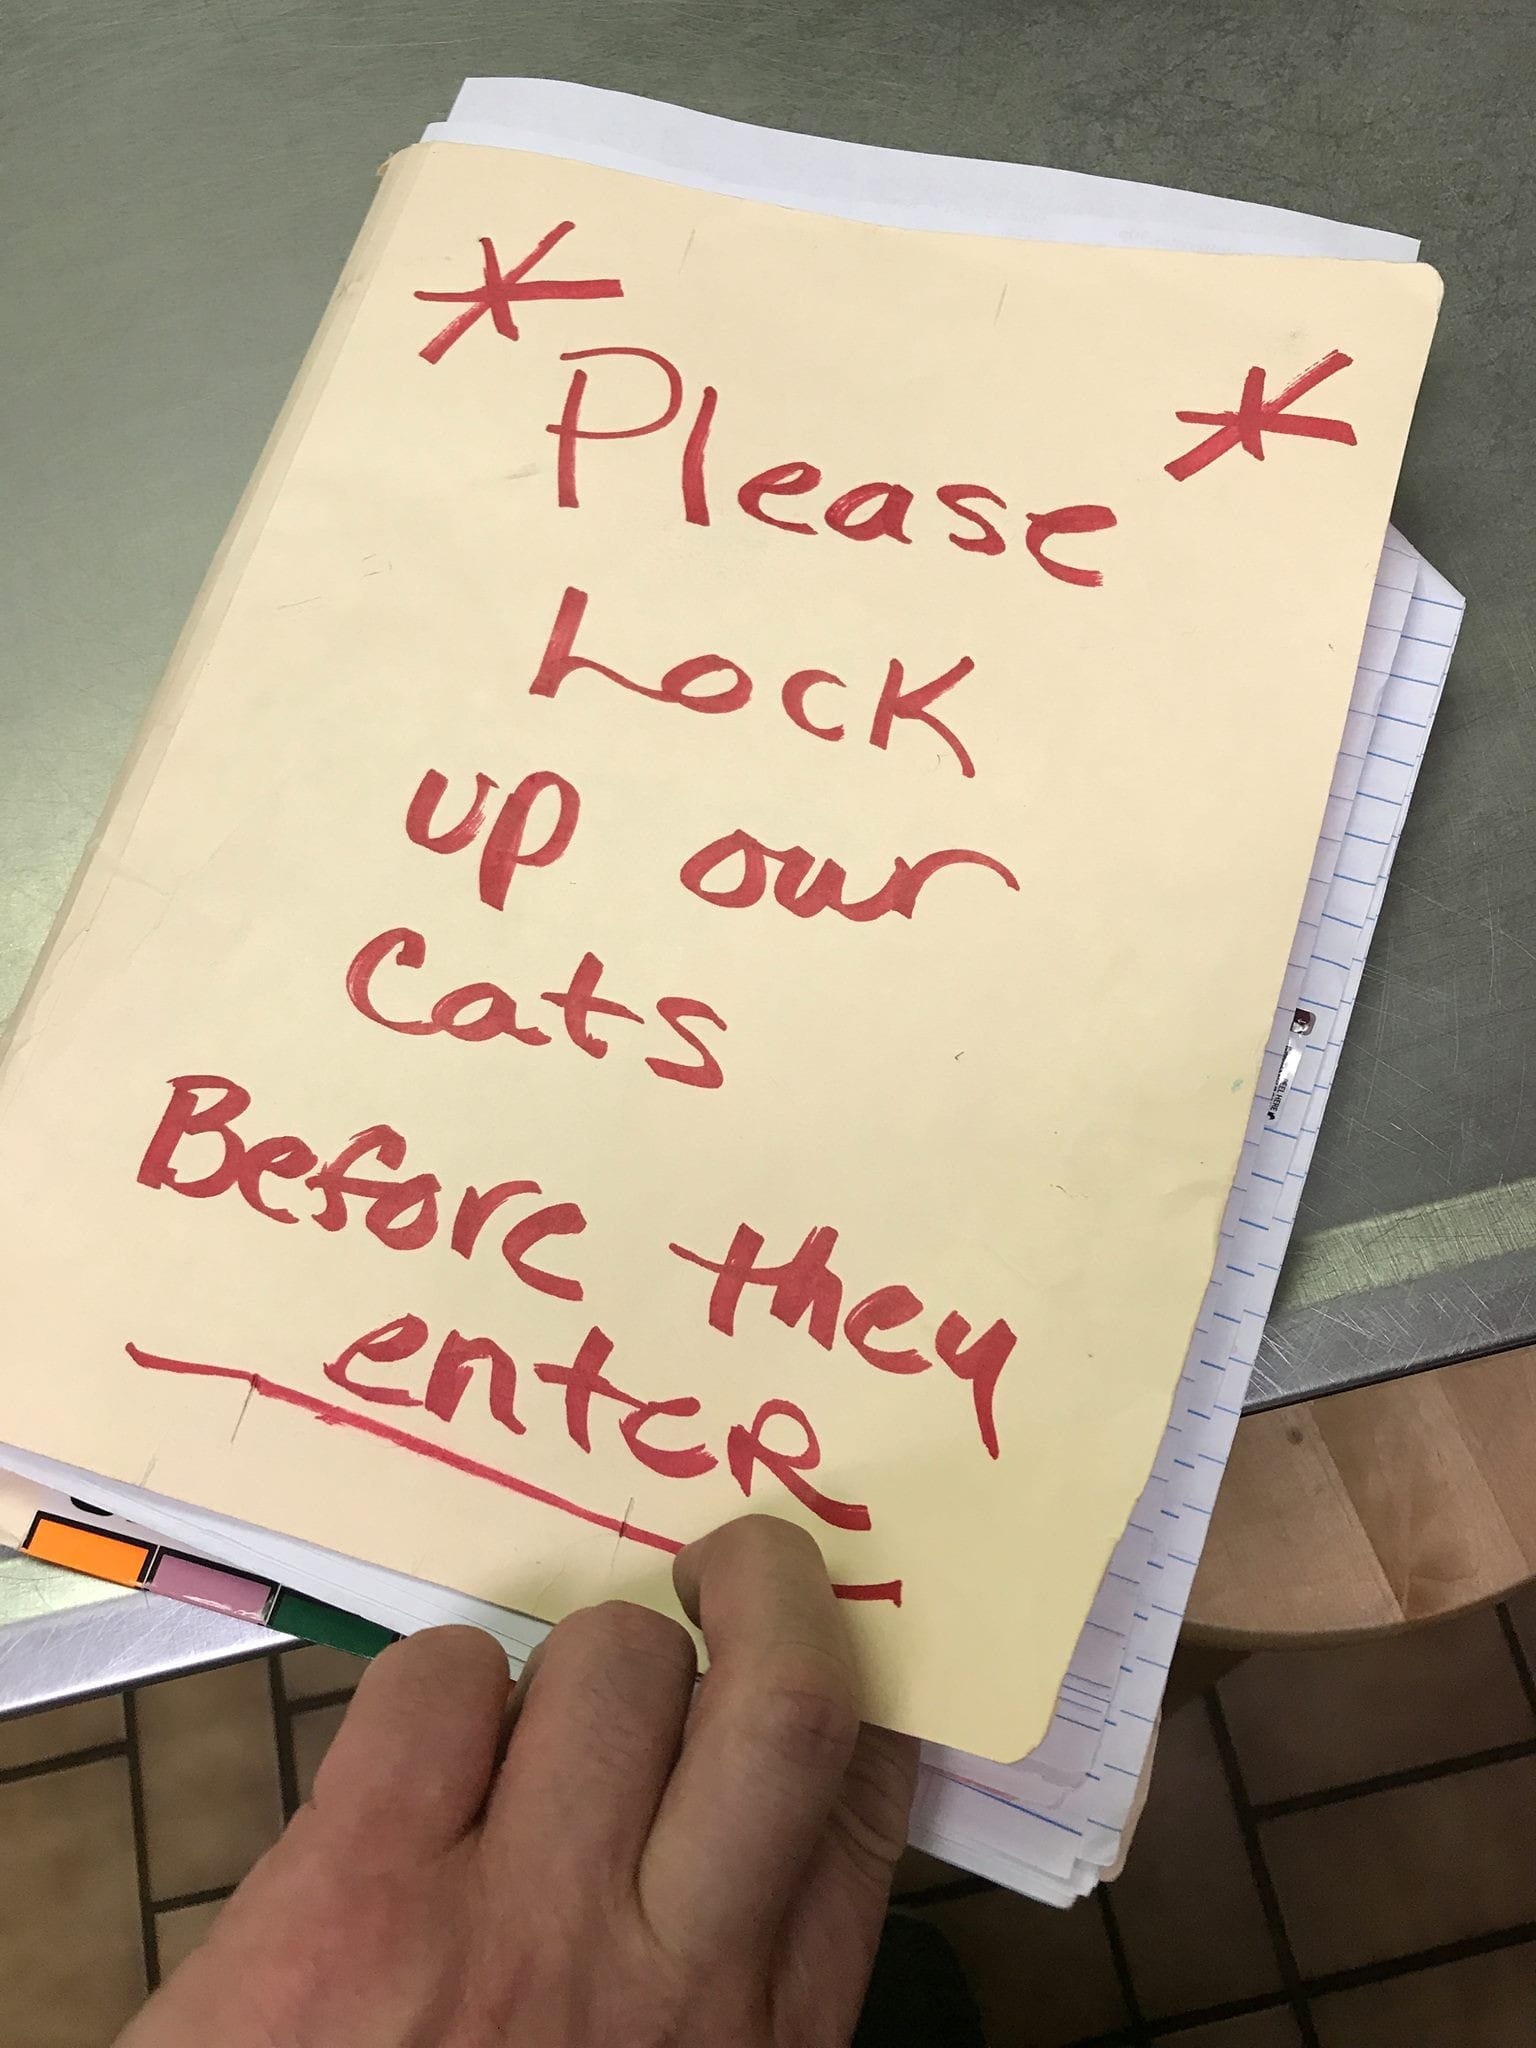 * Please *
Lock
up our
Cats
Before they
enteR
PEEL HERE